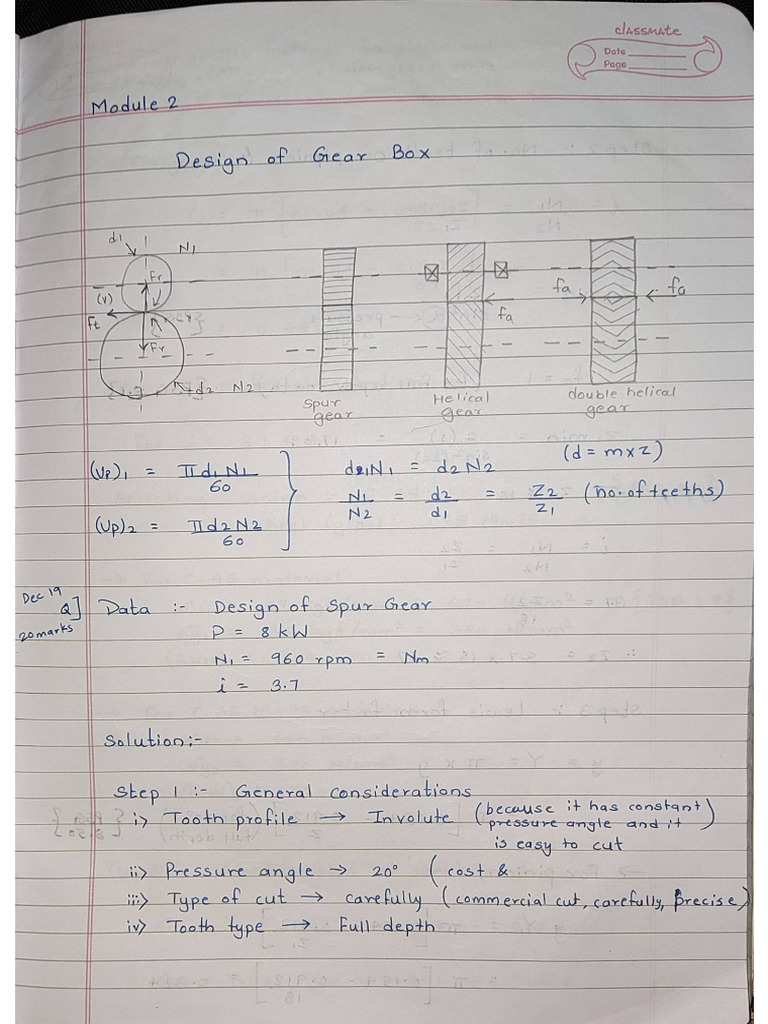 classmate
Date
Page
Module 2
Design of Gear Box
d1
N1
Fr
(V)
Ft
Fr
d2 N2
fa
fa
fa
Spur gear
Helical gear
double helical gear
(Vp)1 = πd1N1/60
d1N1 = d2N2 (d = m×z)
N1/N2 = d2/d1 = Z2/Z1 (no. of teeths)
(Vp)2 = πd2N2/60
Dec 19
Q] Data :- Design of Spur Gear
20 marks
P = 8 kW
N1 = 960 rpm = Nm
i = 3.7
Solution:-
Step 1 :- General considerations
i> Tooth profile → Involute (because it has constant
pressure angle and it)
is easy to cut
ii> Pressure angle → 20° (cost &
iii> Type of cut → carefully (commercial cut, carefully, Precise)
iv> Tooth type → Full depth